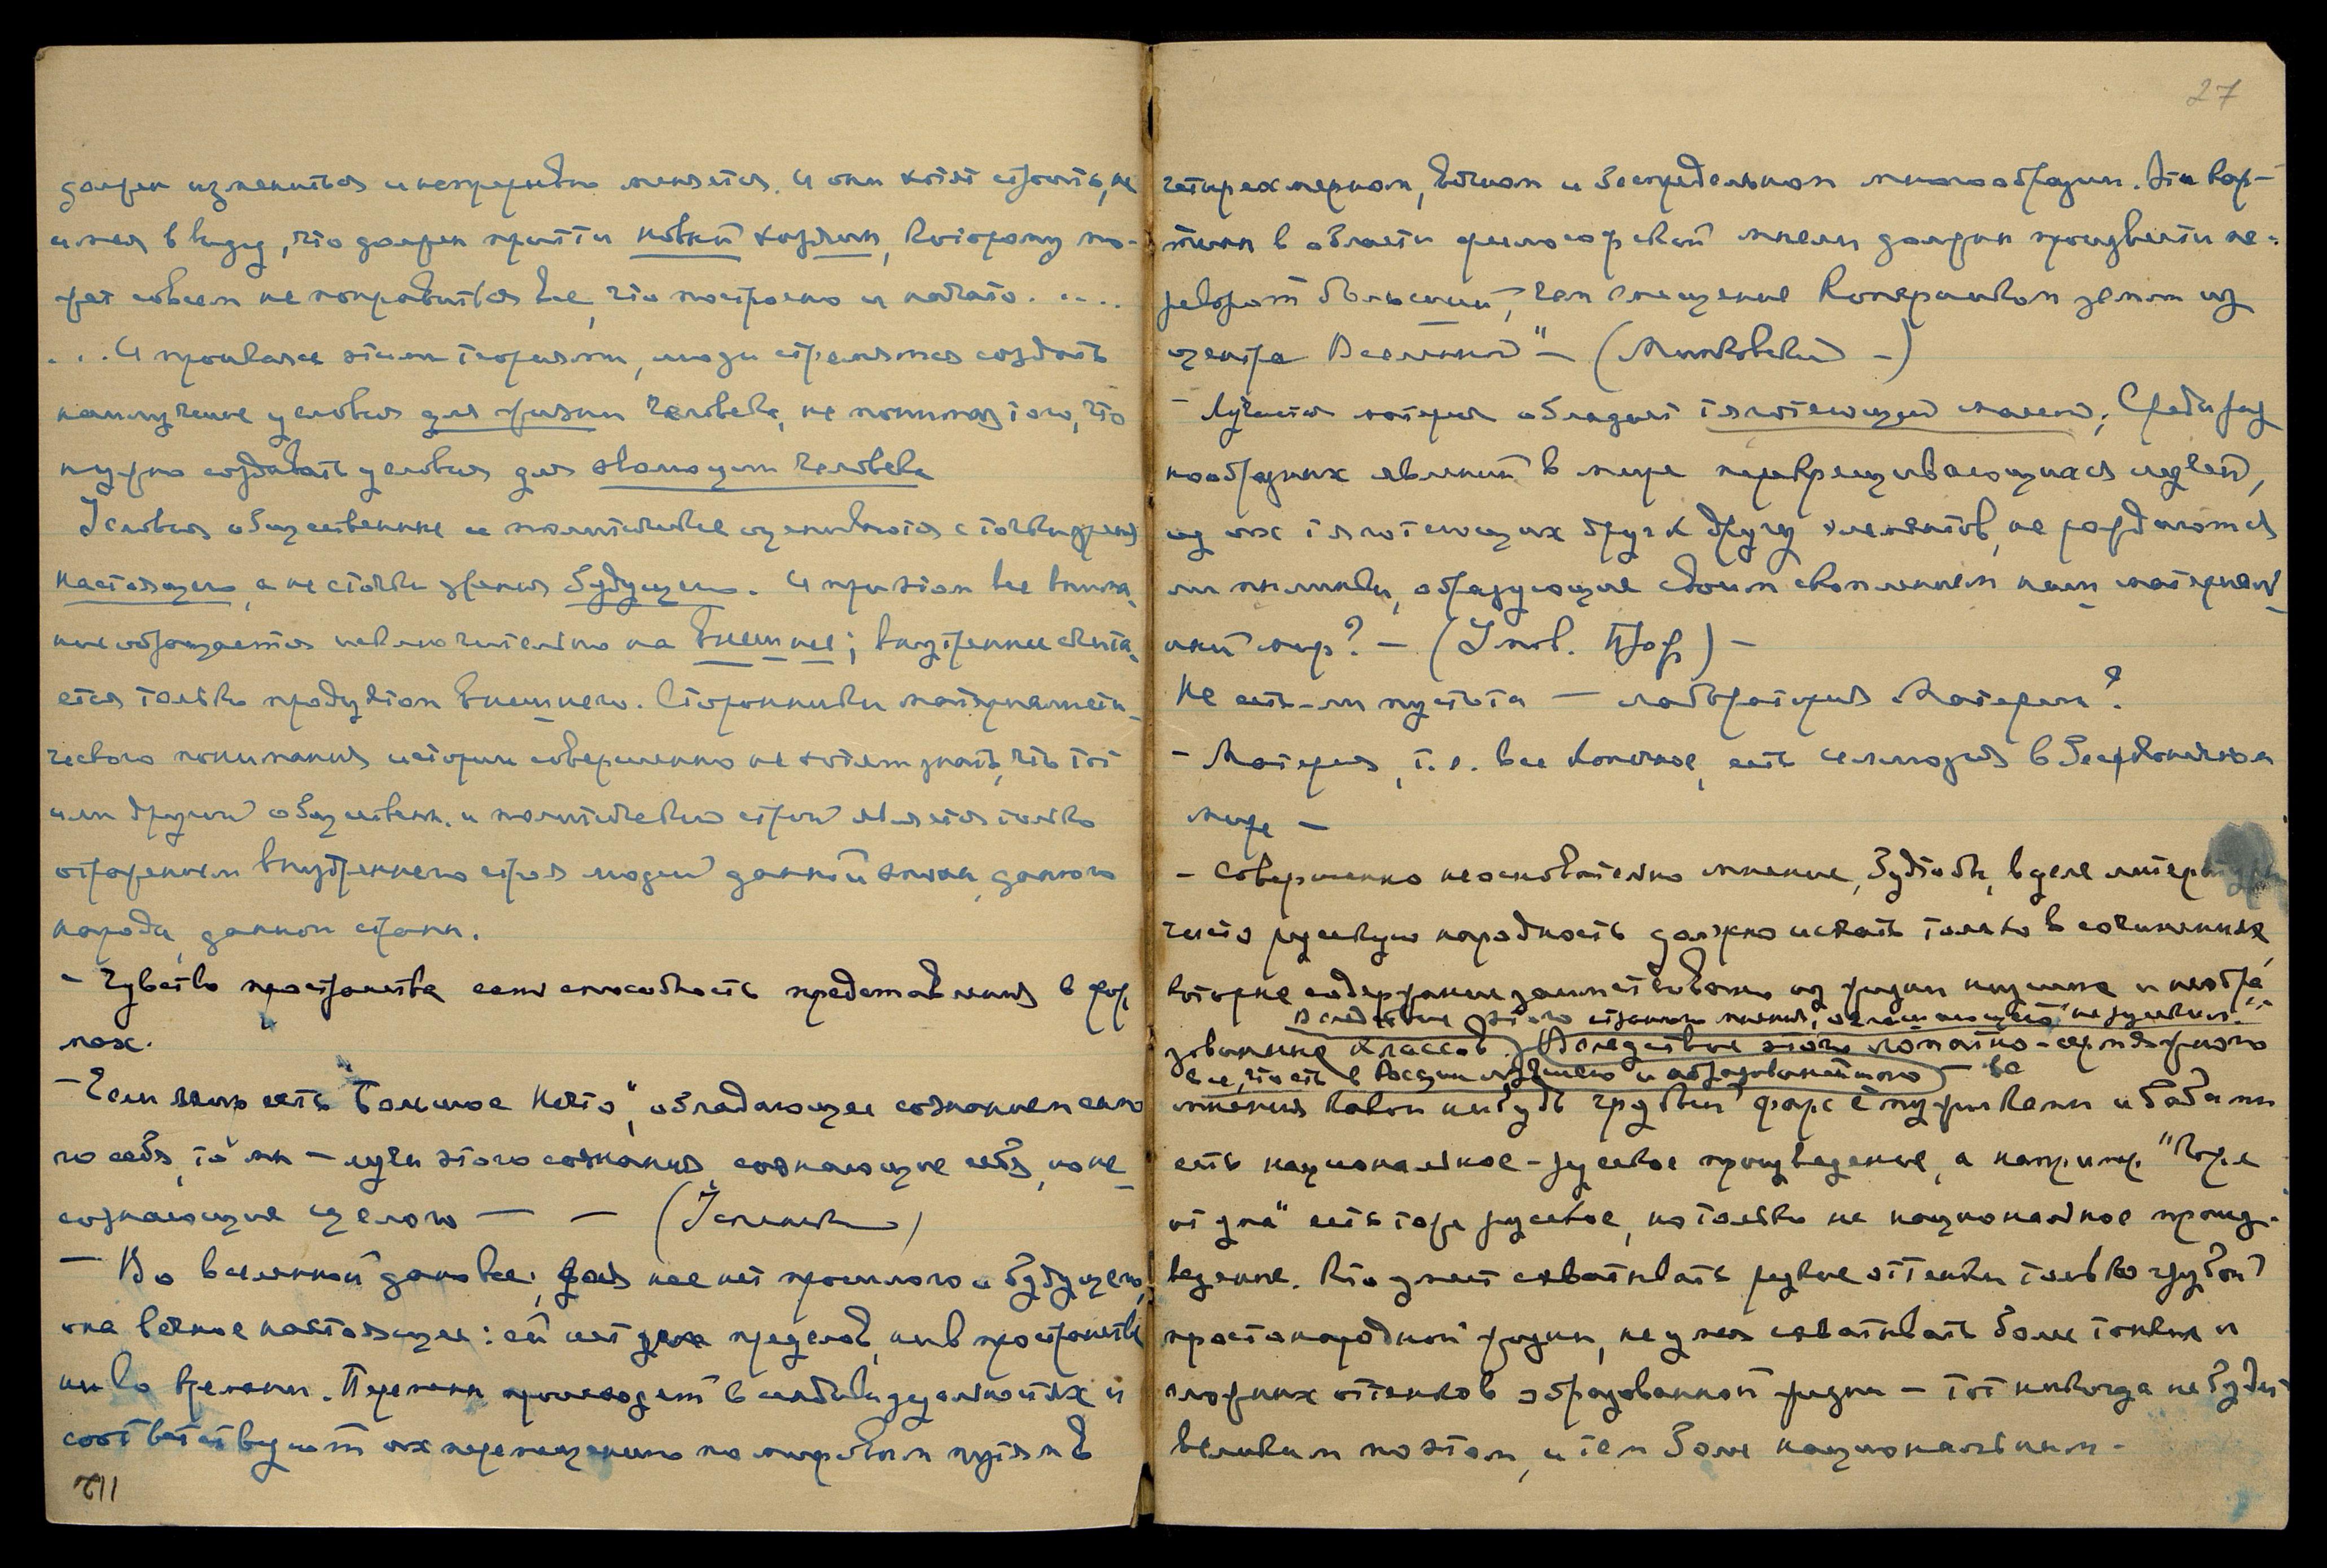 должен измениться и непрерывно меняется. И они хотят строить, не
имея в виду, что должен притти новый хозяин, которому мо-
жет совсем не понравиться все, что построено и начато. . ...
. . . И проникаясь этими теориями, люди стремятся создать
наилучшие условия для жизни человека, не понимая того, что
нужно создавать условия для эволюции человека
Условия общественные и политические оцениваются с точки зрения
настоящего, а не с точки зрения будущего. И при этом все внима-
ние обращается исключительно на внешнее; внутреннее счита-
ется только продуктом внешнего. Сторонники материалисти-
ческого понимания истории совершенно не хотят знать, что тот
или другой обществен. и политический строй является только
отражением внутреннего строя людей данной эпохи, данного
народа, данной страны.
- Чувство пространства есть способность представления в фор-
мах.
- Если есть "Большое Нечто", обладающее сознанием само-
го себя, то мы - лучи этого сознания, сознающие себя, но не
сознающие целого — — (Успенский)
— Во вселенной дано все; для нее нет прошлого и будущего,
она вечное настоящее: ей нет пределов, ни в пространстве
ни во времени. Перемены происходят в индивидуальностях и
соответствуют их перемещению по мировым путям в
112
27
четырехмерном, вечном и беспредельном многообразии. Эти вор-
мысли в области философской мысли должны произвести пе-
реворот больший, чем смещение Коперником земли из
центра Вселенной" — (Минковский -)
- Лучистая материя обладает тяготеющей массой; Среди раз
нообразных явлений в мире перекрещивающихся лучей,
из их тяготеющих друг к другу элементов, не рождаются
ли пылинки, образующие своим скоплением наш материаль-
ный мир? — (Умов. Проф) —
Не есть-ли пустота — лаборатория Материи?
- Материя, т.е. все конечное, есть иллюзия в бесконечном
мире —
- Совершенно неосновательно мнение, будто бы, в деле литературы
чисто русскую народность должно искать только в сочинениях,
которые содержание заимствовано из жизни низших и необра-
Вследствие этого странного мнения, оглашающего "не русским"
зованных классов. Вследствие этого лопатно-сермяжного
все, что есть в России лучшего и образованнейшего —
мнения какой нибудь грубый фарс с мужиками и бабами
есть национальное-русское произведение, а наприм. "Горе
от ума" есть тоже русское, но только не национальное произ-
ведение. Кто умеет схватывать резкие оттенки только грубой
простонародной жизни, не умея схватывать более тонких и
сложных оттенков образованной жизни — тот никогда не будет
великим поэтом, и тем более национальным.